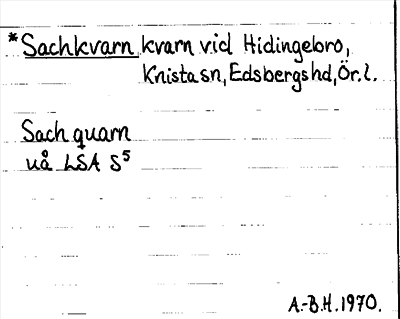 *Sachkvarn kvarn vid Hidingebro,
Knista sn, Edsbergs hd, Ör. l.
Sach quarn
uå LSA S5
A.-B.H. 1970.